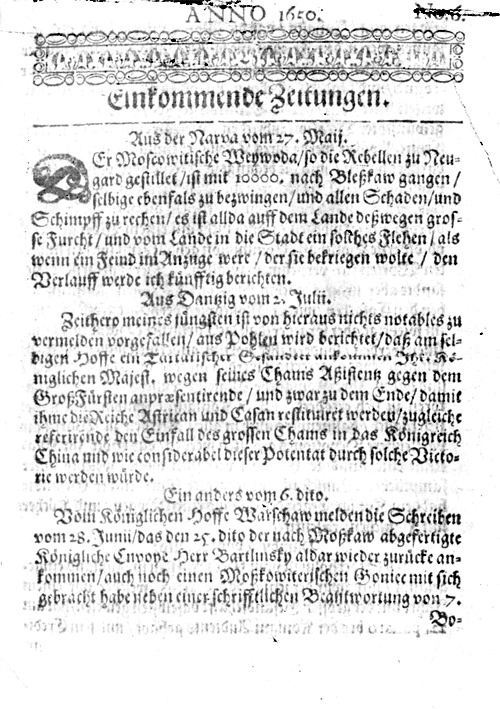 ANNO 1650.
No. 6.
Einkommende Zeitungen.
Aus der Narva vom 27. Maij.
DEr Moscowitische Weywoda/so die Rebellen zu Neu-
gard gestillet/ist mit 10000. nach Bleßkaw gangen/
selbige ebenfals zu bezwingen/und allen Schaden/und
Schimpff zu rechen/es ist allda auff dem Lande deßwegen gros-
se Furcht/und vom Lande in die Stadt ein solches Flehen/als
wenn ein Feind im Anzuge were/der sie bekriegen wolte/den
Verlauff werde ich künfftig berichten.
Aus Dantzig vom 2. Julii.
Zeithero meines jüngsten ist von hieraus nichts notables zu
vermelden vorgefallen/aus Pohlen wird berichtet/daß am sel-
bigen Hoffe ein Tartarischer Gesandter ankommen Ihr. Kö-
niglichen Majest. wegen seines Chams Aßistentz gegen dem
GroßFürsten anpræsentirende/und zwar zu dem Ende/damit
ihme die Reiche Astrican und Casan restituiret werden/zugleiche
referirende den Einfall des grossen Chams in das Königreich
China und wie considerabel dieser Potentat durch solche Victo-
rie werden würde.
Ein anders vom 6. dito.
Vom Königlichen Hoffe Warschaw melden die Schreiben
vom 28. Junii/das den 25. dito der nach Moßkaw abgefertigte
Königliche Envoye Herr Bartlinsky aldar wieder zurücke an-
kommen/auch noch einen Moßkowiterischen Goniec mit sich
gebracht habe neben einer schrifftlichen Beantwortung von 7.
Bo-